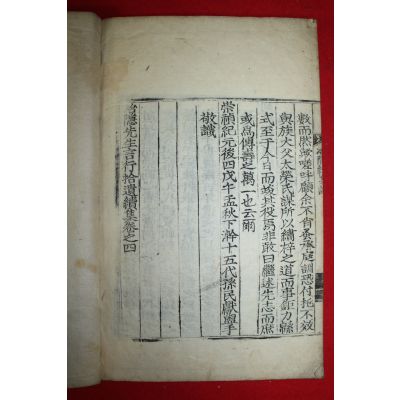 數而然歟嗟呼顧余不肖夙承庭訓恐付托不效
與族大父太榮氏謀所以繡梓之道而事鉅力綿
式至于今日而竣其役焉非敢曰繼述先志而庶
或爲傅壽之萬一也云爾
崇禎紀元後四戊午孟秋下澣十五代孫民獻盥手
敬識
冶隱先生言行拾遺續集卷之四